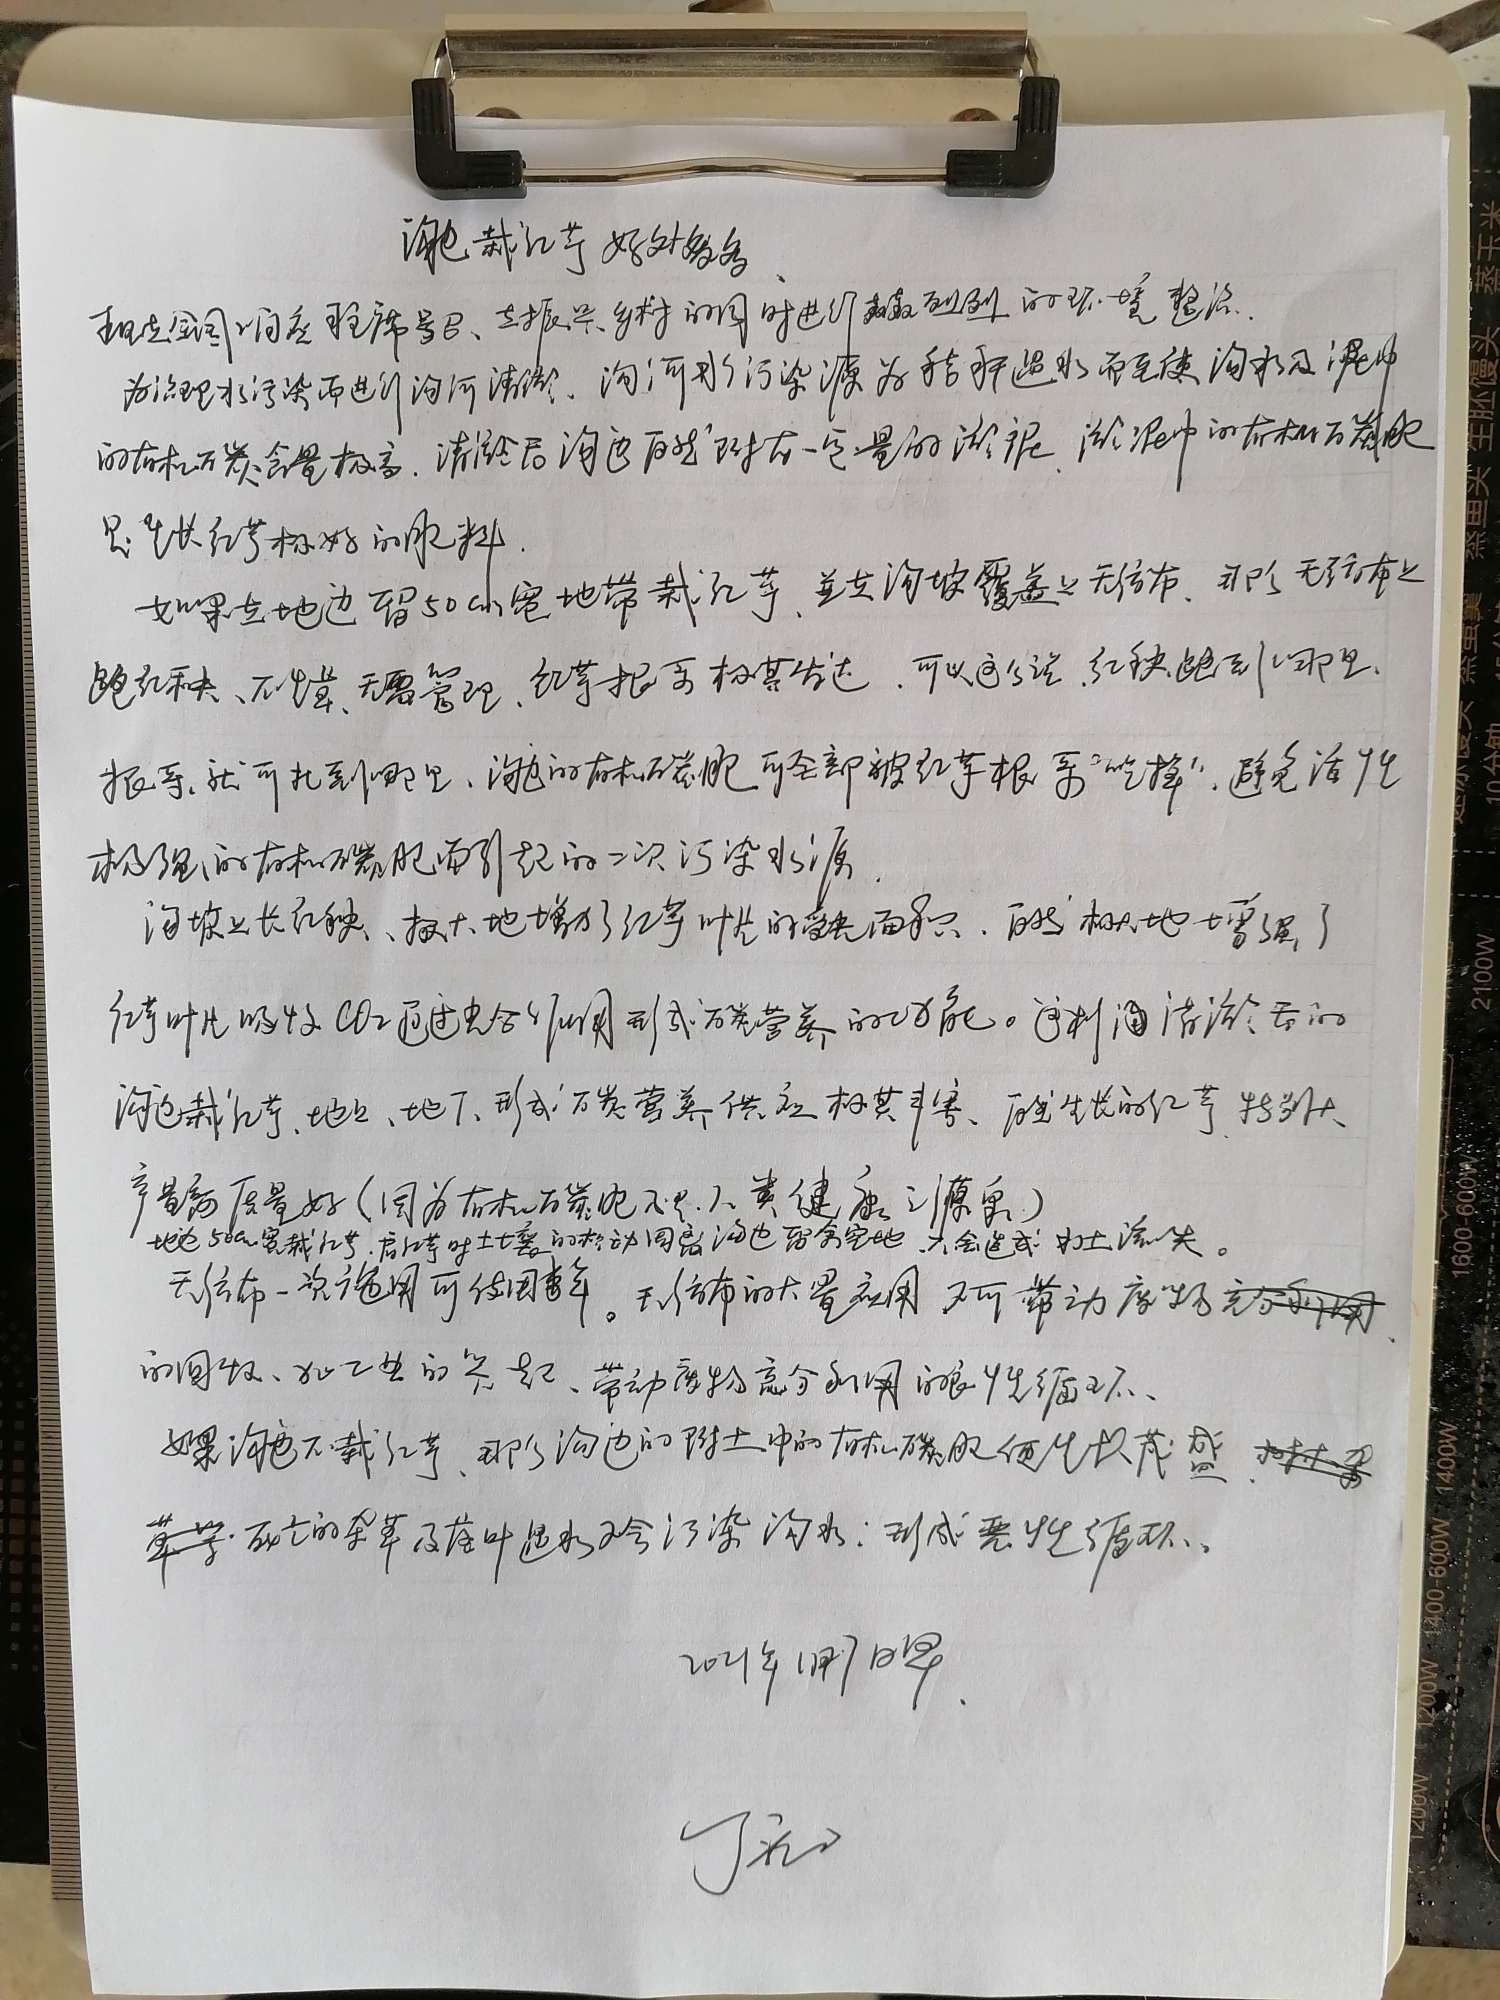 沟边栽红芋好处多多
现在全国上下响应习主席号召、在振兴乡村的同时进行轰轰烈烈的环境整治.
为治理水污染而进行沟河清淤. 沟河水污染源为秸秆遇水而至使沟水及泥中
的有机碳含量极高. 清淤后沟边自然附有一定量的淤泥. 淤泥中的有机碳肥
是生长红芋极好的肥料.
如果在地边留50cm宽地带栽红芋、并在沟坡覆盖上无纺布. 那么无纺布上
跑红秧、不生草、无需管理、红芋根系极其发达. 可以这么说. 红秧跑到哪里.
根系就可扎到哪里、沟边的有机碳肥可全部被红芋根系“吃掉”. 避免活性
极强的有机碳肥而引起的二次污染水源.
沟坡上长红秧、极大地增加了红芋叶片的受光面积. 自然极大地增强了
红芋叶片吸收CO2通过光合作用形成碳营养的功能。这种沟清淤后的
沟边栽红芋、地上、地下、形成碳营养供应极其丰富、自然生长的红芋特别大、
产量高质量好(因为有机碳肥是人类健康之源泉)
地边50cm宽栽红芋. 起红芋时土壤的松动因离沟边留有宽地. 不会造成水土流失。
无纺布一次施用可使用多年。无纺布的大量应用 又可带动废物充分利用
的回收、加工业的兴起、带动废物充分利用的良性循环、
如果沟边不栽红芋、那么沟边的附土中的有机碳肥便生长茂盛
草 死亡的杂草及落叶遇水又会污染沟水: 形成恶性循环、
2021年11月7日早.